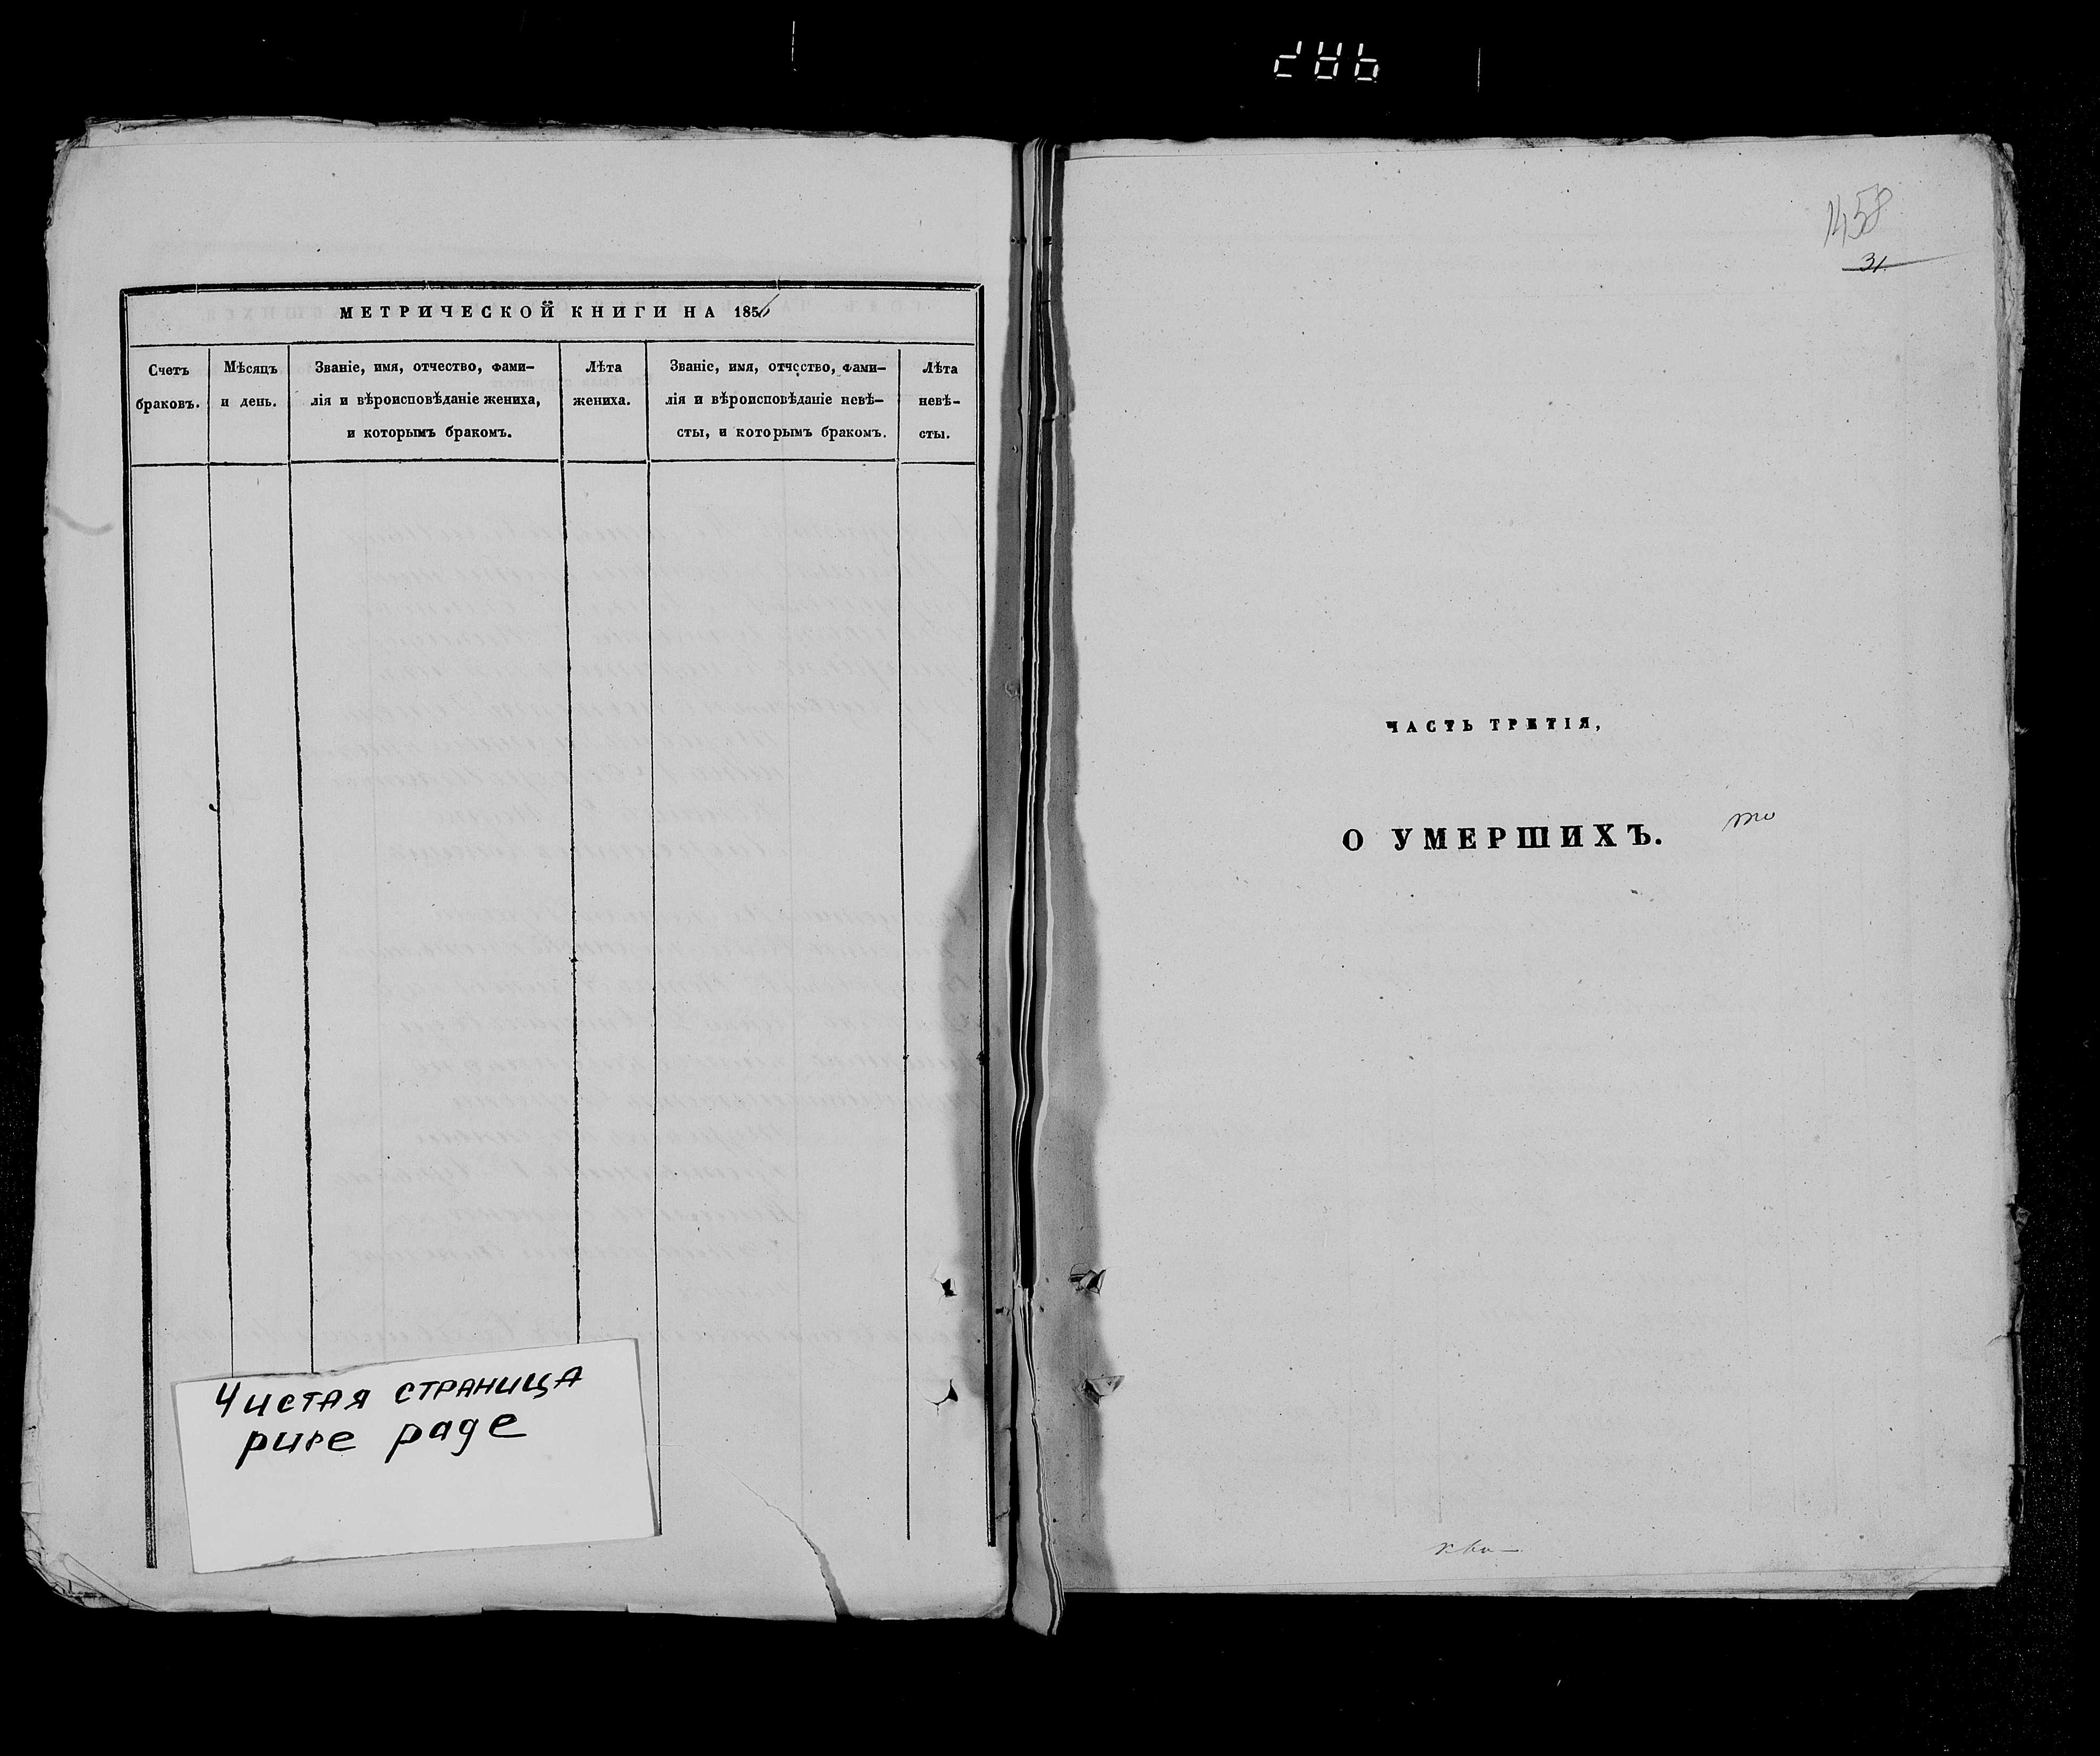 МЕТРИЧЕСКОЙ КНИГИ НА 1856
Счетъ браковъ.
Мѣсяцъ и день.
Званіе, имя, отчество, фами-
лія и вѣроисповѣданіе жениха,
и которымъ бракомъ.
Лѣта жениха.
Званіе, имя, отчество, фами-
лія и вѣроисповѣданіе невѣ-
сты, и которымъ бракомъ.
Лѣта невѣ-
сты.
Чистая страница
pure page
1458
31
ЧАСТЬ ТРЕТІЯ,
О УМЕРШИХЪ.